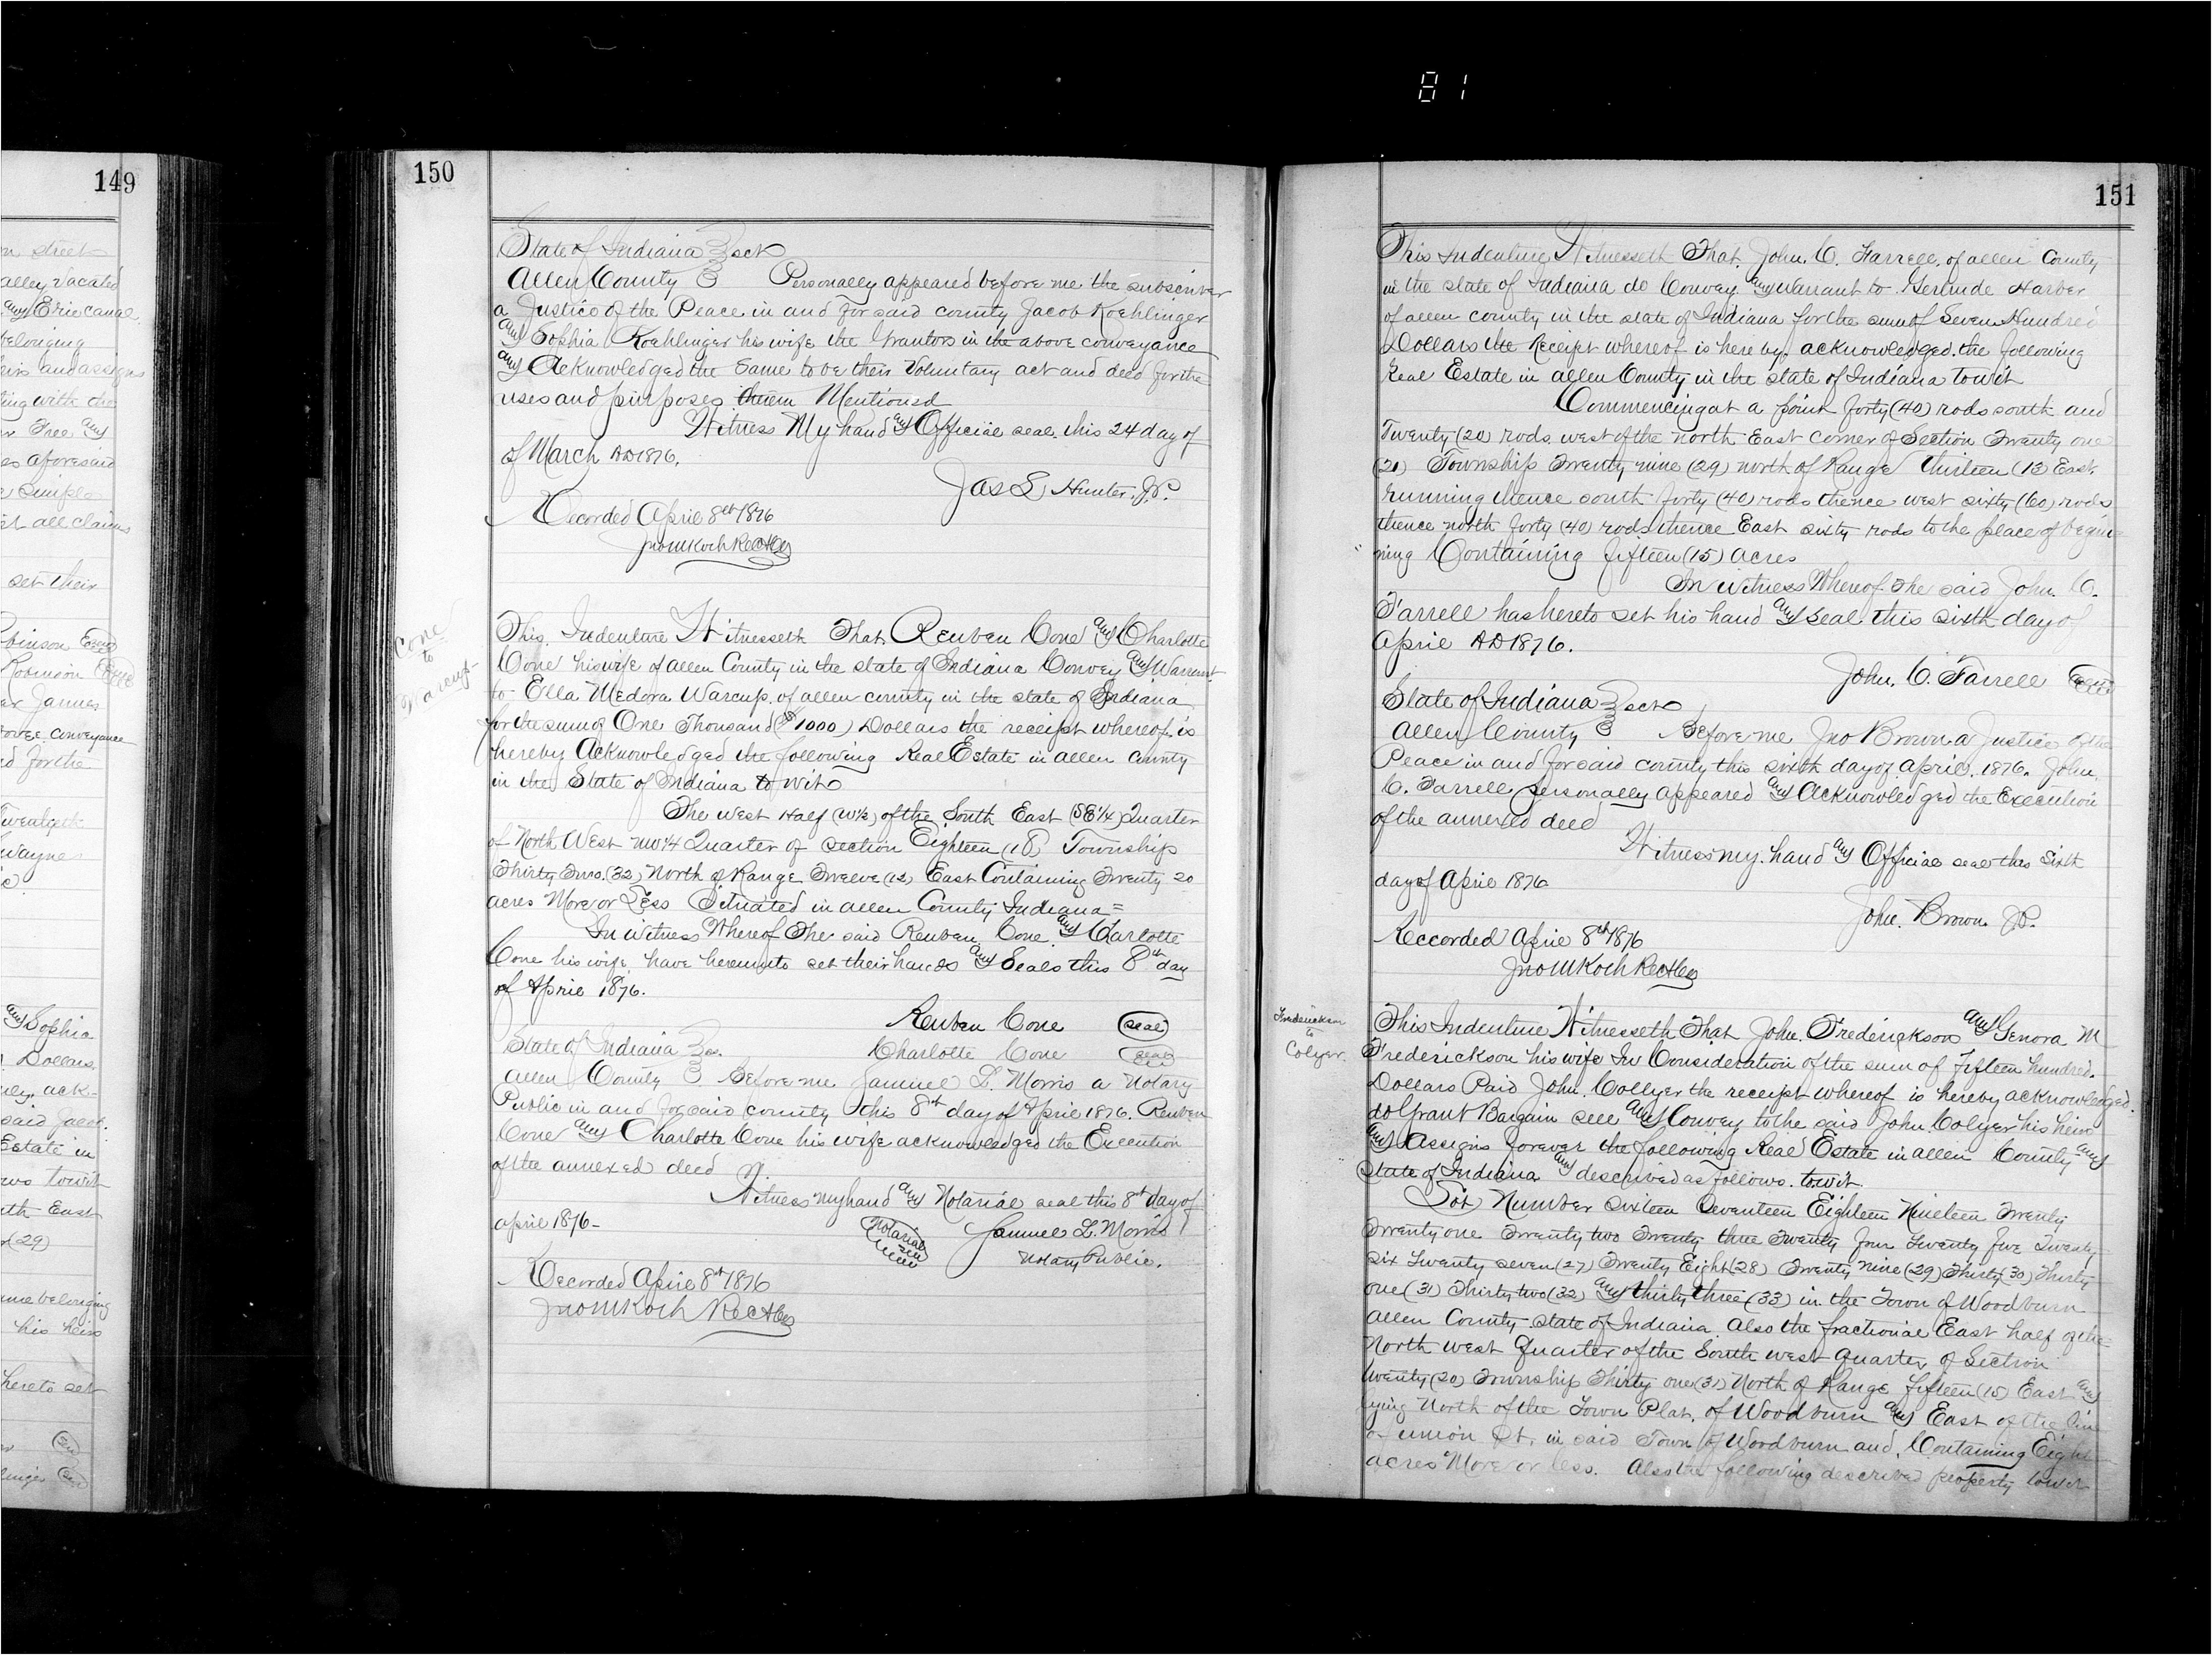 81
149
n street
alley vacated
and Erie canal
belonging
heirs and assigns
ing with the
Free and
es aforesaid
simple
st all claims
set their
Robinson Seal
Robinson Seal
James
above conveyance
d for the
Twentieth
Wayne
and Sophia
Dollars
ack-
said Jacob
Estate in
towit
th East
(29)
me belonging
his heirs
hereto set
Seal
linger Seal
150
State of Indiana } sct
Allen County } Personally appeared before me the subscriber
a Justice of the Peace in and for said county Jacob Koehlinger
and Sophia Koehlinger his wife the Grantors in the above conveyance
and Acknowledged the Same to be their Voluntary act and deed for the
uses and purposes therein Mentioned
Witness My hand and Official seal this 24 day of
of March AD 1876.
Jas S Hunter, J.P.
Recorded April 8th 1876
Jno M Koch Rec A Co
Cone
to
Warcup
This Indenture Witnesseth That Reuben Cone and Charlotte
Cone his wife of Allen County in the state of Indiana Convey and Warrant
to Ella Medora Warcup, of Allen county in the state of Indiana
for the sum of One Thousand ($1000) Dollars the receipt whereof is
hereby Acknowledged the following Real Estate in Allen County
in the State of Indiana to wit
The West Half (W½) of the South East (SE¼) Quarter
of North West NW¼ Quarter of Section Eighteen (18) Township
Thirty Two (32) North of Range Twelve (12) East Containing Twenty 20
acres More or Less Situated in Allen County Indiana =
In witness Whereof The said Reuben Cone and Charlotte
Cone his wife have hereunto set their hands and Seals this 8th day
of April 1876.
Reuben Cone Seal
State of Indiana } ss. Charlotte Cone Seal
Allen County } Before me Samuel L. Morris a Notary
Public in and for said county this 8th day of April 1876. Reuben
Cone and Charlotte Cone his wife acknowledged the Execution
of the annexed deed
Witness my hand and Notarial seal this 8th day of
April 1876 - Notarial Seal Samuel L. Morris
Notary Public.
Recorded April 8th 1876
Jno M Koch Rec A Co
151
This Indenture Witnesseth That, John. C. Farrell, of Allen County
in the state of Indiana do Convey and Warrant to Gertrude Harber
of Allen county in the state of Indiana for the sum of Seven Hundred
Dollars the Receipt whereof is hereby acknowledged. the following
Real Estate in Allen County in the state of Indiana towit
Commencing at a point forty (40) rods south and
Twenty (20) rods west of the north East corner of Section Twenty one
(21) Township Twenty nine (29) north of Range Thirteen (13) East.
running thence south forty (40) rods thence west sixty (60) rods
thence north forty (40) rods thence East sixty rods to the place of begin-
ning Containing fifteen (15) acres
In witness Whereof The said John. C.
Farrell has hereto set his hand and seal this sixth day of
April AD 1876.
John. C. Farrell Seal
State of Indiana } sct
Allen County } Before me Jno Brown a Justice of the
Peace in and for said county this sixth day of April. 1876. John.
C. Farrell personally appeared and Acknowledged the Execution
of the annexed deed
Witness my hand and Official seal this Sixth
day of April 1876
John. Brown J.P.
Reccorded April 8th 1876
Jno M Koch Rec A Co
Frederickson
to
Colyer.
This Indenture Witnesseth That John. Frederickson and Genora M
Frederickson his wife In Consideration of the sum of Fifteen hundred.
Dollars Paid John. Collyer the receipt whereof is hereby acknowledged.
do Grant Bargain sell and Convey to the said John. Colyer his heirs
and Assigns forever the following Real Estate in Allen County and
State of Indiana and described as follows. towit.
Lot Number Sixteen Seventeen Eighteen Nineteen Twenty
Twenty one Twenty two Twenty three Twenty four Twenty five Twenty
six Twenty seven (27) Twenty Eight (28) Twenty nine (29) Thirty (30) Thirty
one (31) Thirty two (32) and thirty three (33) in the Town of Woodburn
Allen County state of Indiana. Also the fractional East half of the
North west Quarter of the South west quarter of Section
twenty (20) Township Thirty one (31) North of Range fifteen (15) East and
lying North of the Town Plat, of Woodburn and East of the line
of Union St. in said Town of Woodburn and. Containing Eight
acres More or less. Also the following described property towit